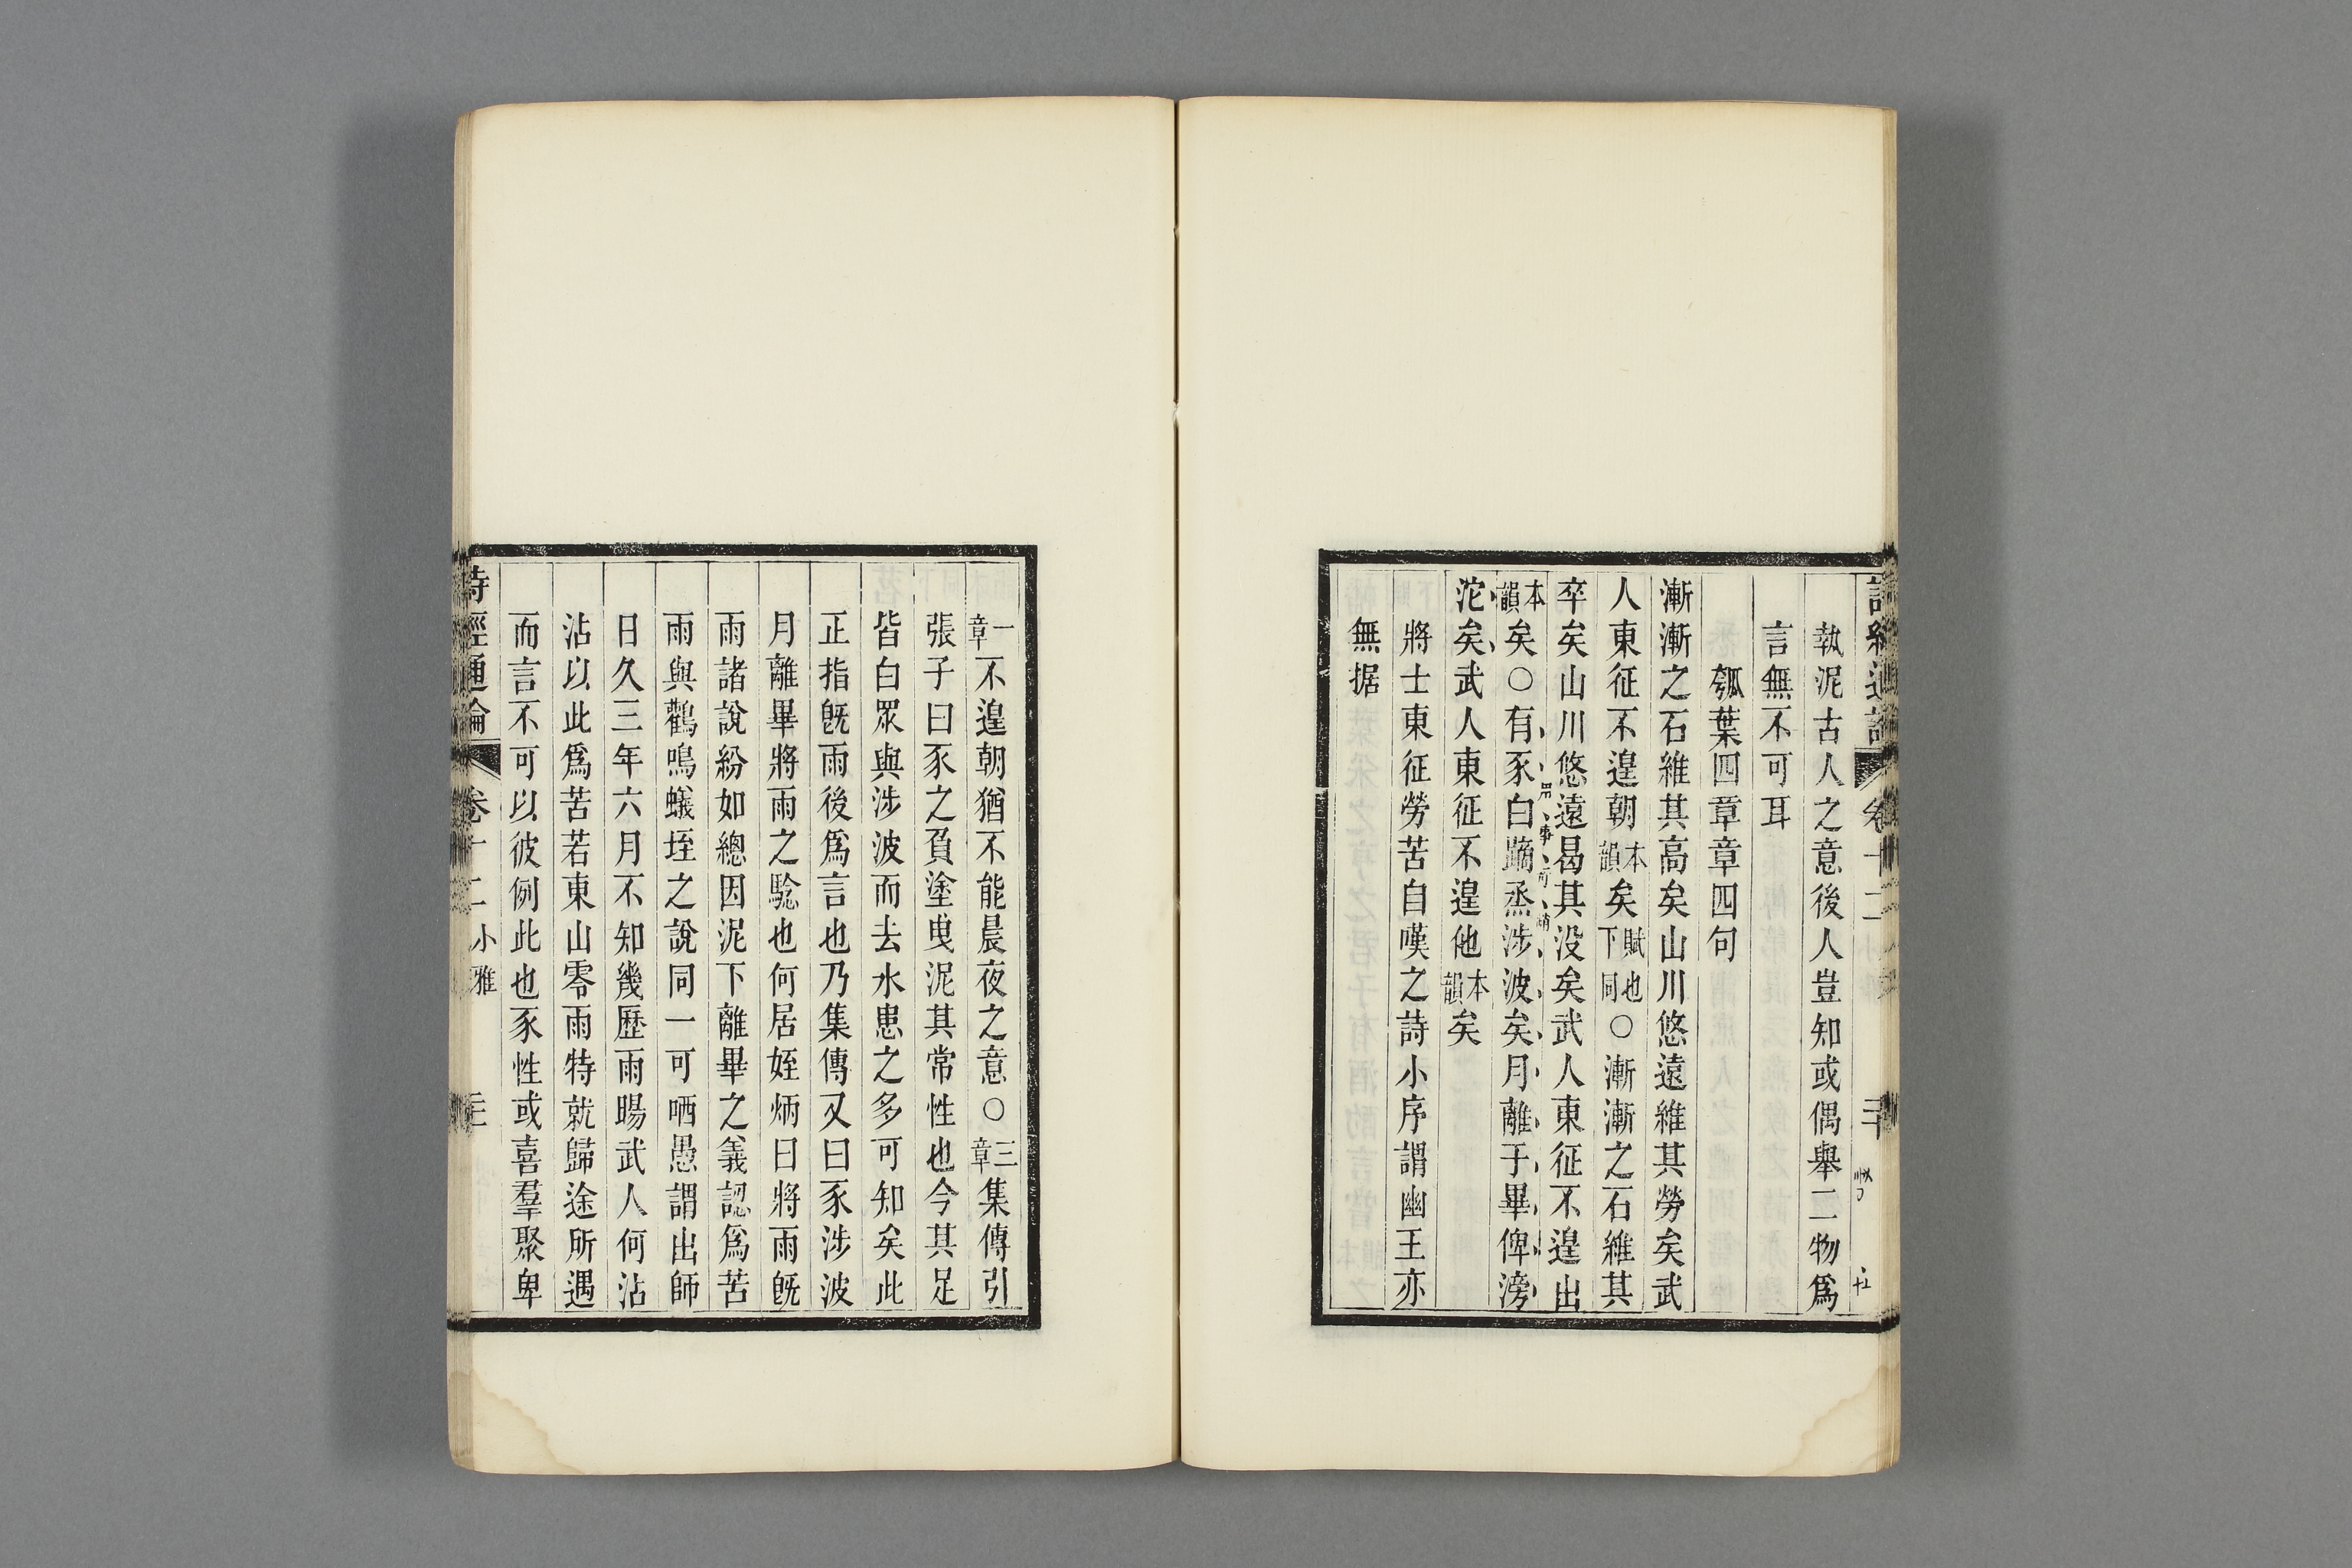 詩經通論 卷十二
執泥古人之意後人豈知或偶舉二物爲
言無不可耳
瓠葉四章章四句
漸漸之石維其高矣山川悠遠維其勞矣武
人東征不遑朝本韻矣賦也下同○漸漸之石維其
卒矣山川悠遠曷其没矣武人東征不遑出
本韻矣○有豕白蹢烝涉波矣月離于畢俾滂
沱矣武人東征不遑他本韻矣
將士東征勞苦自嘆之詩小序謂幽王亦
無据
一章不遑朝猶不能晨夜之意○三章集傳引
張子曰豕之負塗曳泥其常性也今其足
皆白眾與涉波而去水患之多可知矣此
正指旣雨後爲言也乃集傳又曰豕涉波
月離畢將雨之騐也何居姪炳曰將雨旣
雨諸說紛如總因泥下離畢之義認爲苦
雨與鸛鳴蟻垤之說同一可哂愚謂出師
日久三年六月不知幾歷雨暘武人何沾
沾以此爲苦若東山零雨特就歸途所遇
而言不可以彼例此也豕性或喜羣聚卑
詩經通論 卷十二 小雅